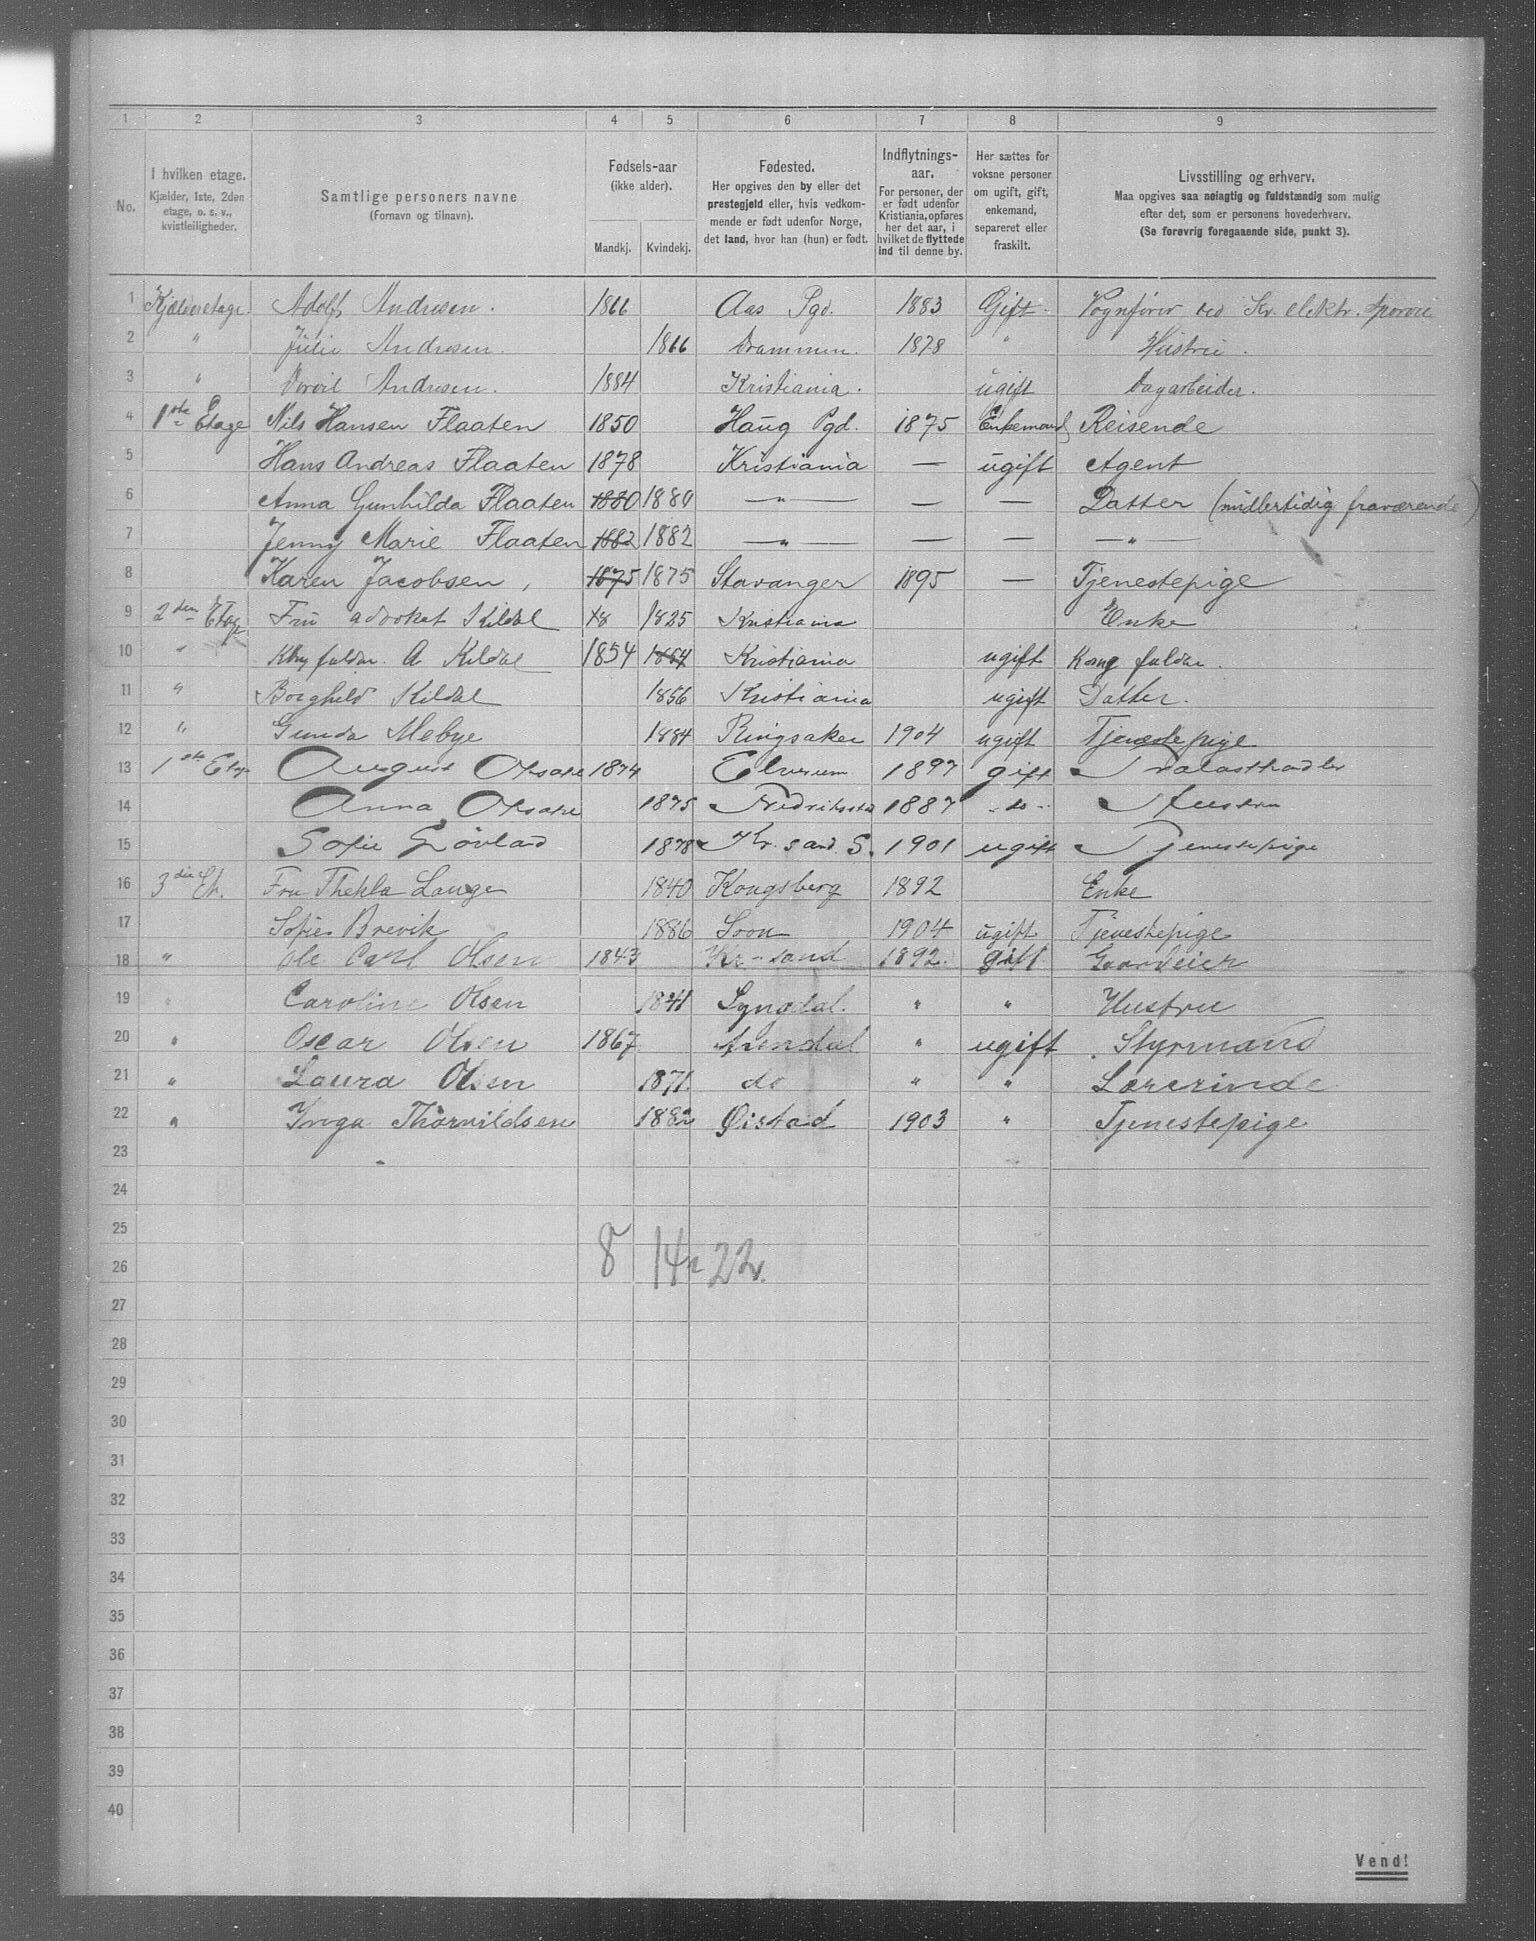 1 2 3 4 5 6 7 8 9
No. I hvilken etage. Kjælder, 1ste, 2den etage, o. s. v., kvistleiligheder. Samtlige personers navne (Fornavn og tilnavn). Fødsels-aar (ikke alder). Mandkj. Kvindekj. Fødested. Her opgives den by eller det prestegjeld eller, hvis vedkommende er født udenfor Norge, det land, hvor han (hun) er født. Indflytnings-aar. For personer, der er født udenfor Kristiania, opføres her det aar, i hvilket de flyttede ind til denne by. Her sættes for voksne personer om ugift, gift, enkemand, separeret eller fraskilt. Livsstilling og erhverv. Maa opgives saa nøiagtig og fuldstændig som mulig efter det, som er personens hovederhverv. (Se forøvrig foregaaende side, punkt 3).
1 Kjælderetage Adolf Andresen. 1866 Aas Pgd. 1883 Gift. Vognfører ved Kr. elektr. Sporvei
2 " Julie Andresen. 1866 Drammen. 1878 " Hustru.
3 " Andresen. 1884 Kristiania. ugift Dagarbeider.
4 1ste Etage Nils Hansen Flaaten 1850 Haug Pgd. 1875 Enkemand Reisende
5 Hans Andreas Flaaten 1878 Kristiania — ugift Agent
6 Anna Gunhilda Flaaten 1880 1880 — " — — — Datter (midlertidig fraværende)
7 Jenny Marie Flaaten 1882 1882 — " — — — — " —
8 Karen Jacobsen, 1875 1875 Stavanger 1895 — Tjenestepige
9 2den Etage Fru advokat Kildal 18 1825 Kristiania Enke
10 " A Kildal 1854 1854 Kristiania ugift
11 " Borghild Kildal 1856 Kristiania ugift Datter.
12 " Gunda Mebye 1884 Ringsaker 1904 ugift Tjenestepige
13 1ste Etg August 1874 Elverum 1897 gift Trælasthandler
14 Anna 1875 Fredriksstad 1887 - do - Hustru
15 Sofie 1878 Kr. sand. S. 1901 ugift Tjenestepige
16 3die Et. Fru Thekla Lange 1840 Kongsberg 1892 Enke
17 Sofie Brevik 1886 Soon 1904 ugift Tjenestepige
18 " Ole Carl Olsen 1843 Kr-sand 1892. gift Gaardeier
19 " Caroline Olsen 1841 Lyngdal. " " Hustru
20 " Oscar Olsen 1867 Arendal " ugift Styrmand
21 " Laura Olsen 1871. do " " Lærerinde
22 " Inga Thorvildsen 1882 Øistad 1903 " Tjenestepige
23
24
25
26 8 14 = 22.
27
28
29
30
31
32
33
34
35
36
37
38
39
40
Vend!